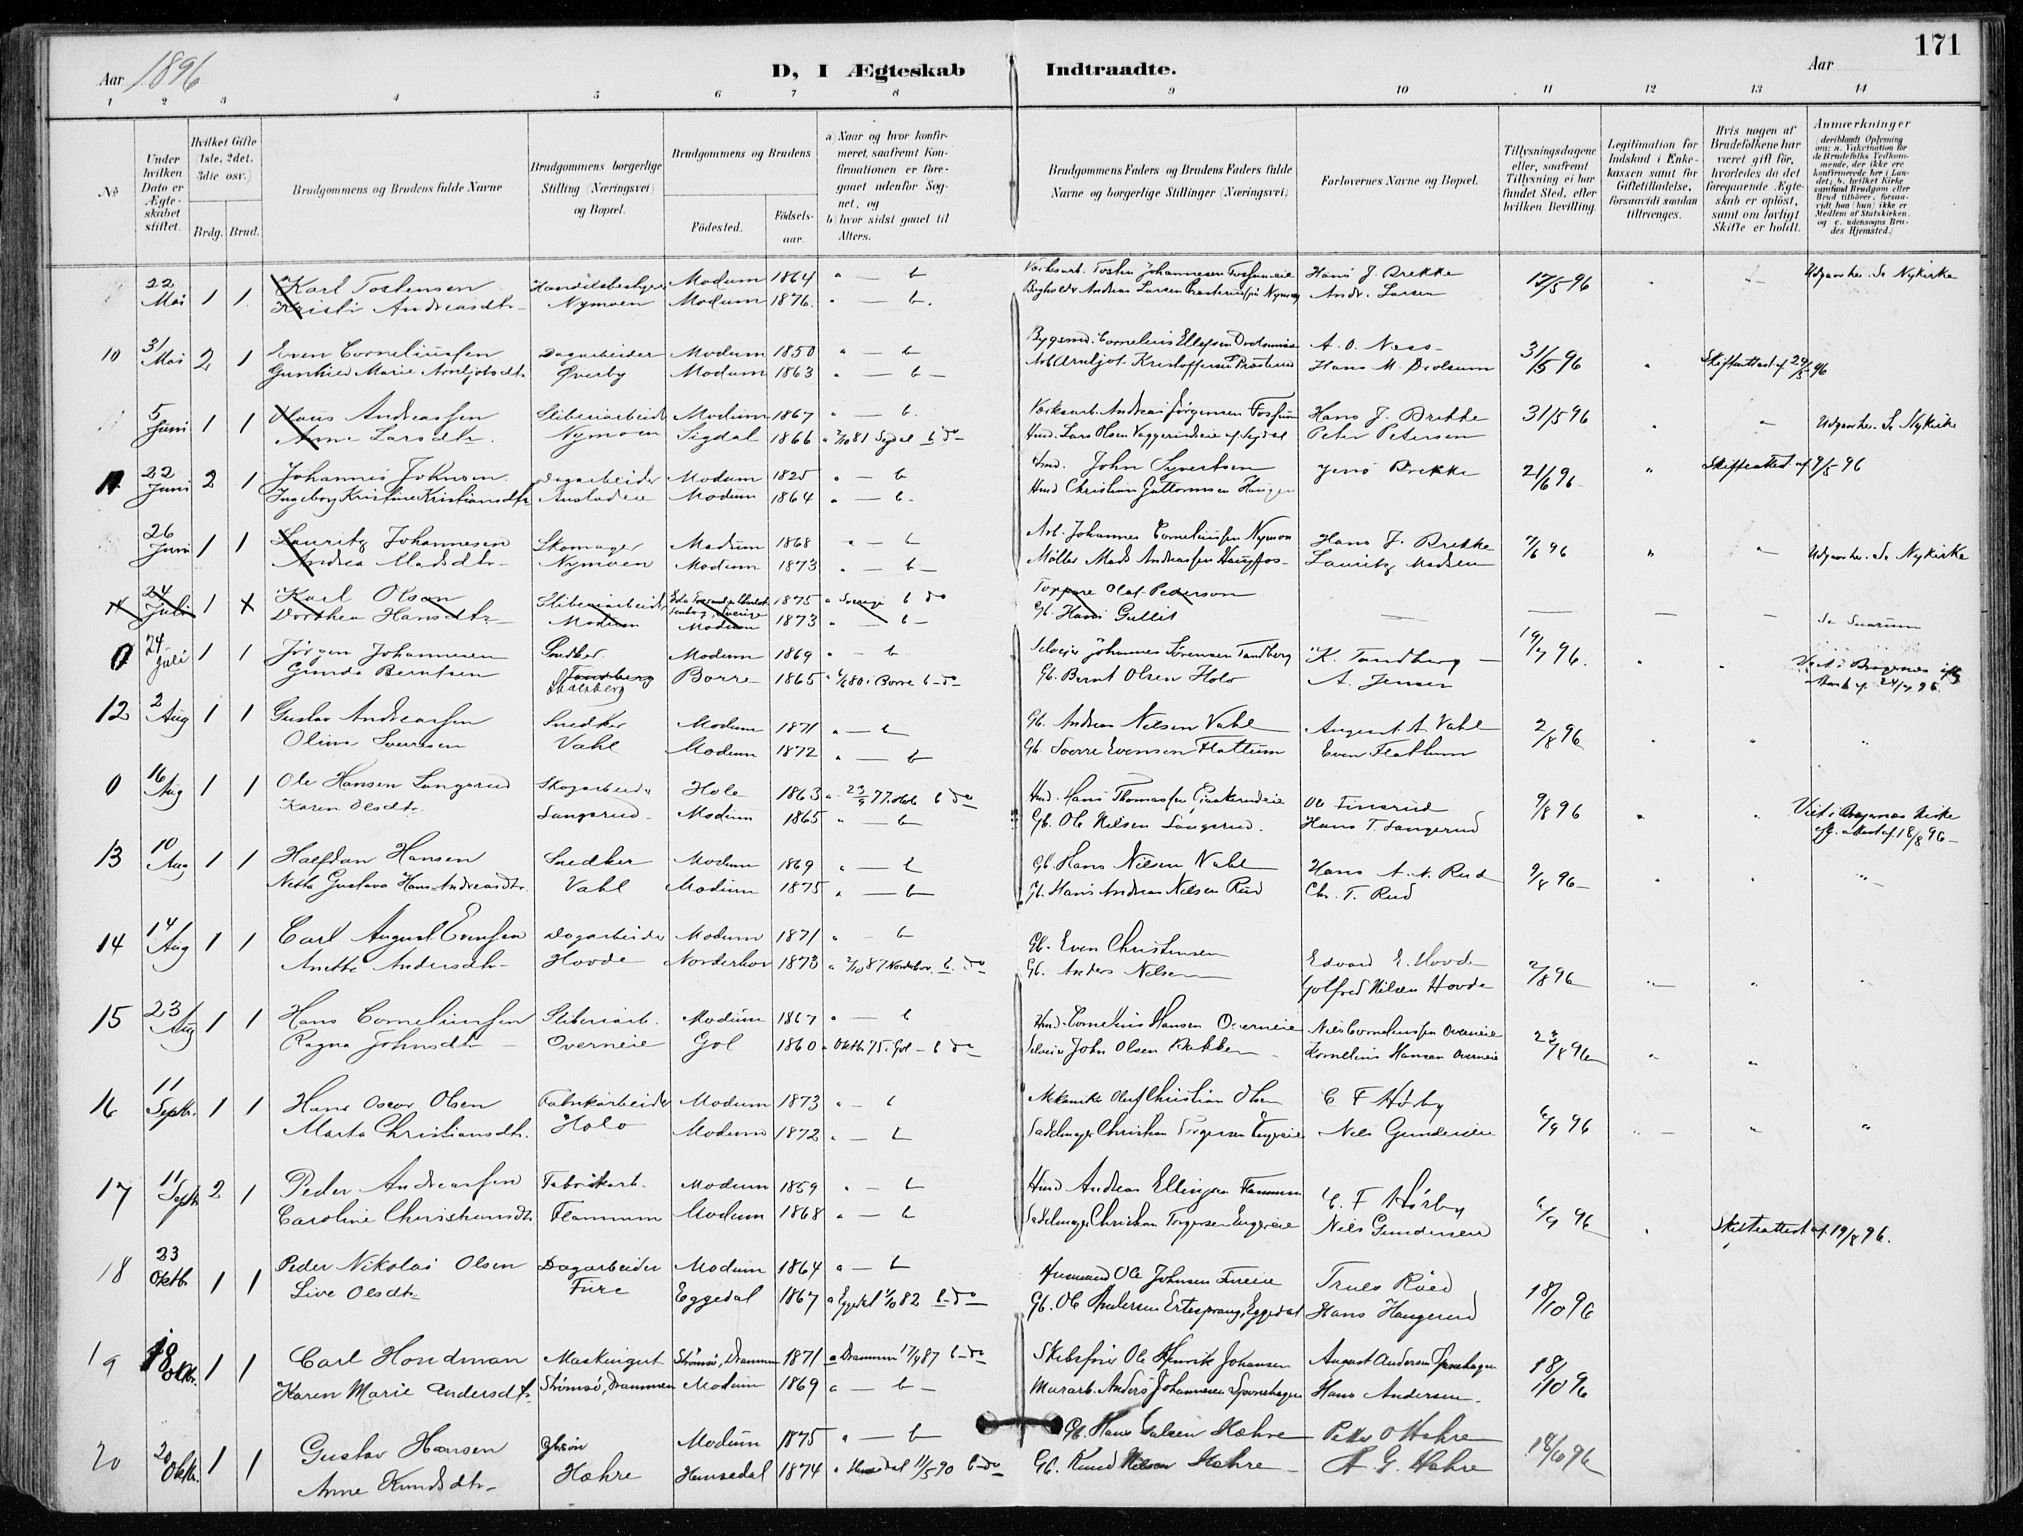 171
Aar 1896
D, I Ægteskab Indtraadte.
Aar
1 2 3 4 5 6 7 8 9 10 11 12 13 14
№
Under hvilken Dato er Ægteskabet stiftet.
Hvilket Gifte (1ste, 2det, 3die osv.)
Brdg. Brud.
Brudgommens og Brudens fulde Navne
Brudgommens borgerlige Stilling (Næringsvei) og Bopæl.
Brudgommens og Brudens
Födested.
Födselsaar.
a) Naar og hvor konfirmeret, saafremt Konfirmationen er foregaaet udenfor Sognet, og
b) hvor sidst gaaet til Alters.
Brudgommens Faders og Brudens Faders fulde Navne og borgerlige Stillinger (Næringsvei)
Forlovernes Navne og Bopæl.
Tillysningsdagene eller, saafremt Tillysning ei har fundet Sted, efter hvilken Bevilling.
Legitimation for Indskud i Enkekassen samt for Giftetilladelse, forsaavidt saadan tiltrænges.
Hvis nogen af Brudefolkene har været gift för, hvorledes da det foregaaende Ægteskab er oplöst, samt om lovligt Skifte er holdt.
Anmærkninger (deriblandt Oplysning om: a. Vakcination for de Brudefolks Vedkommende, der ikke ere konfirmerede her i Landet; b. hvilket Kirkesamfund Brudgom eller Brud tilhörer, forsaavidt han (hun) ikke er Medlem af Statskirken. og c. udensogns Brudes Hjemsted.)
22 Mai 1 1 Karl Tostensen Handelsbestyrer Modum 1864 a — b Værksarb. Johannesen Hans J. Brekke 17/5 96 Udgaar her. Se Nykirke
Kristi Andreasdtr Nymoen Modum 1876 " — b. Andreas Larsen Andr. Larsen
10 31 Mai 2 1 Even Corneliussen Dagarbeider Modum 1850 a — b Cornelius Ellefsen A. O. Ness 31/5 96 Skifteattest af 29/5 96
Gunhild Marie Arneljotsdtr Øverby Modum 1863 a — b — Arb. Arneljot Kristoffersen Hans M. Drolsum
5 Juni 1 1 Claus Andreassen Sliberiarbeider Modum 1867 a — b. Værksarb. Andreas Jørgensen Fossum Hans J. Brekke 31/5 96 Udgaar her. Se Nykirke
Anne Larsdtr. Nymoen Sigdal 1866 a 2/10 81 Sigdal b do Hmd. Lars Olsen af Sigdal Peter Petersen
11 22 Juni 2 1 Johannes Johnsen Dagarbeider Modum 1825 a — b Hmd. John Syvertsen Jens Brekke 21/6 96 Skifteattest af 9/5 96
Ingeborg Kristine Kristiansdtr Modum 1864 " — b. Hmd Christian Guttormsen Haugen
26 Juni 1 1 Lauritz Johannesen Skomager Modum 1868 " — b Arb. Johannes Corneliussen Nymoen Hans J. Brekke 7/6 96 Udgaar her. Se Nykirke
Andrea Madsdtr Nymoen Modum 1873 " — b — Møller Mads Andreassen Haugfos Lauritz Madsen
14 24 Juli 1 Karl Olsen Sliberiarbeider 1875 a Sverige b do Olaf Pederson
Dorthea Hansdtr Modum Modum 1873 " — b — Gb. Hans Gullik Se Snarum
0 24 Juli 1 1 Jørgen Johannesen Snedker Modum 1869 a — b Selveier Johannes Sørensen Tandberg K. Tandberg 19/7 96.
Gunda Berntsen Tandberg Borre 1865 Borre b do Gb. Bernt Olsen Holo A. Jensen 24/7 96
12 2 Aug 1 1 Gustav Andreassen Snedker Modum 1871 a — b Gb. Andreas Nilsen Vahl August A. Vahl 2/8 96
Olina Vahl Modum 1872 " — b Gb. Sverre Evensen Flattum Even Flathum
0 16 Aug 1 1 Ole Hansen Langerud Skogarbeider Hole 1863 a 23/9 77. Hole b do Hmd. Hans Thomassen Ole Finsrud 9/8 96
Karen Olsdtr. Langerud Modum 1865 " — b Gb. Ole Nilsen Langerud. Hans T. Langerud 18/8 96 —
13 10 Aug 1 1 Halfdan Hansen Snedker Modum 1869 " — b Gb. Hans Nilsen Vahl Hans A. N. Rud 9/8 96 —
Netta Gustava Hans-Andreasdtr. Vahl Modum 1875 " — b Gb. Hans Andreas Nilsen Rud Chr. T. Rud
14 14 Aug 1 1 Carl August Evensen Dagarbeider Modum 1871 " — b Gb. Even Christensen Edvard E. Hovde 2/8 96
Anette Andersdtr Hovde Norderhov 1873 a 2/10 87 Norderhov b. do Gb. Anders Nilsen Golfred Nilsen Hovde
15 23 Aug 1 1 Hans Corneliussen Sliberiarb. Modum 1867 " — b Hmd. Cornelius Hansen Overneie Nils Corneliussen Overneie 23/8 96
Ragna Johnsdtr Overneie Gol 1860 a Oktbr 75. Gol — b do Selveier John Olsen Bakken Kornelius Hansen Overneie
16 11 Septbr. 1 1 Hans Oscar Olsen Fabrikarbeider Modum 1873 " — b Mekaniker Oluf Christian Olsen C F Hørby 6/9 96
Marta Christiansdtr. Holo Modum 1872 " — b Sadelmager Christian Torgersen Engereie Nils Gundersen
17 11 Septbr 2 1 Peder Andreassen Fabrikarb. Modum 1859 " — b Hmd Andreas Ellingsen Flannum C. F Hørby 6/9 96 Skifteattest af 19/8 96.
Caroline Christiansdtr. Flannum Modum 1868 " — b Sadelmager Christian Torgersen Engereie Nils Gundersen
18 23 Oktbr 1 1 Peder Nikolai Olsen Dagarbeider Modum 1864 a — b Husmand Ole Johnsen Fureie Truls Røed 18/10 96
Live Olsdtr Fure Eggedal 1867 a Eggedal 1/10 82 b do Gb. Ole Andersen Ertesprang, Eggedal Hans Haugerud
19 18 Oktbr. 1 1 Carl Hondman Maskingut Strømsø, Drammen 1871 a Drammen 17/4 87 b do Skibsfører Ole Henrik Johansen August Andersen Sponehagen 18/10 96
Karen Marie Andersdtr. Strømsø, Drammen Modum 1869 a — b — Murarb. Anders Johannesen Sponehagen Hans Andersen
20 20 Oktbr. 1 1 Gustav Hansen Gbsøn Modum 1875 a — b Gb. Hans Hæhre Peder O Hæhre 18/10 96
Anne Knudsdtr Hæhre Hemsedal 1874 a Hemsedal 11/5 90 b do Gb. Knud Nilsen Hæhre A. G. Hæhre